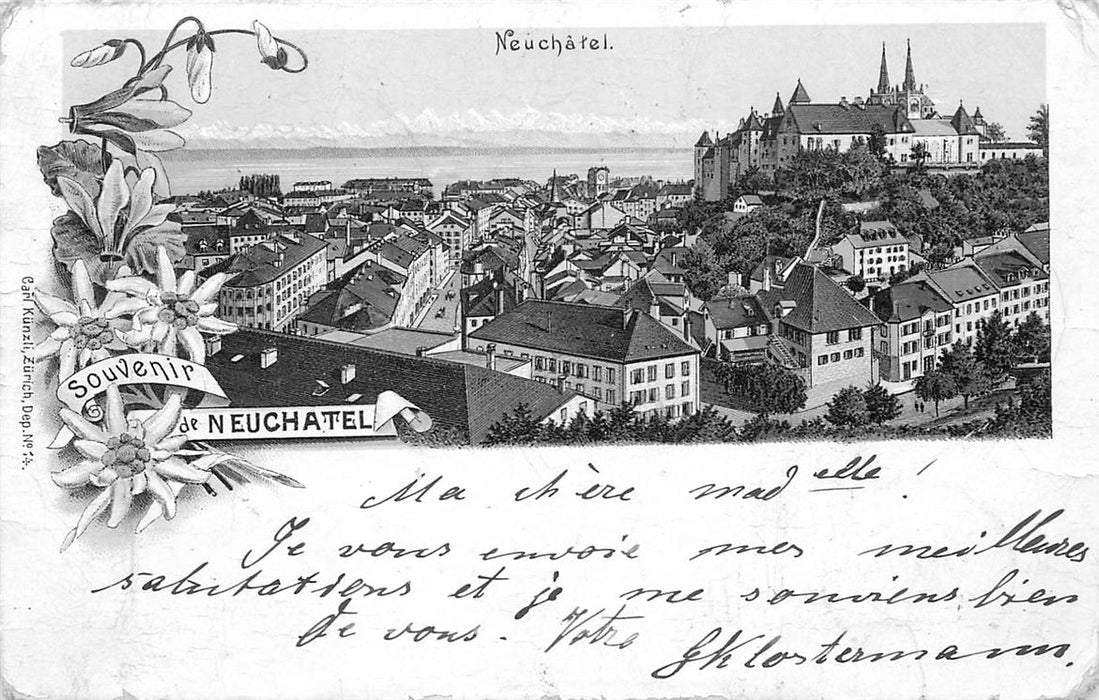 Neuchâtel.
Souvenir
de NEUCHATEL
Carl Künzli, Zürich, Dep. Nº 14.
Ma chère mad elle!
Je vous envoie mes meilleures
salutations et je me souviens bien
de vous. Votre GKlostermann.